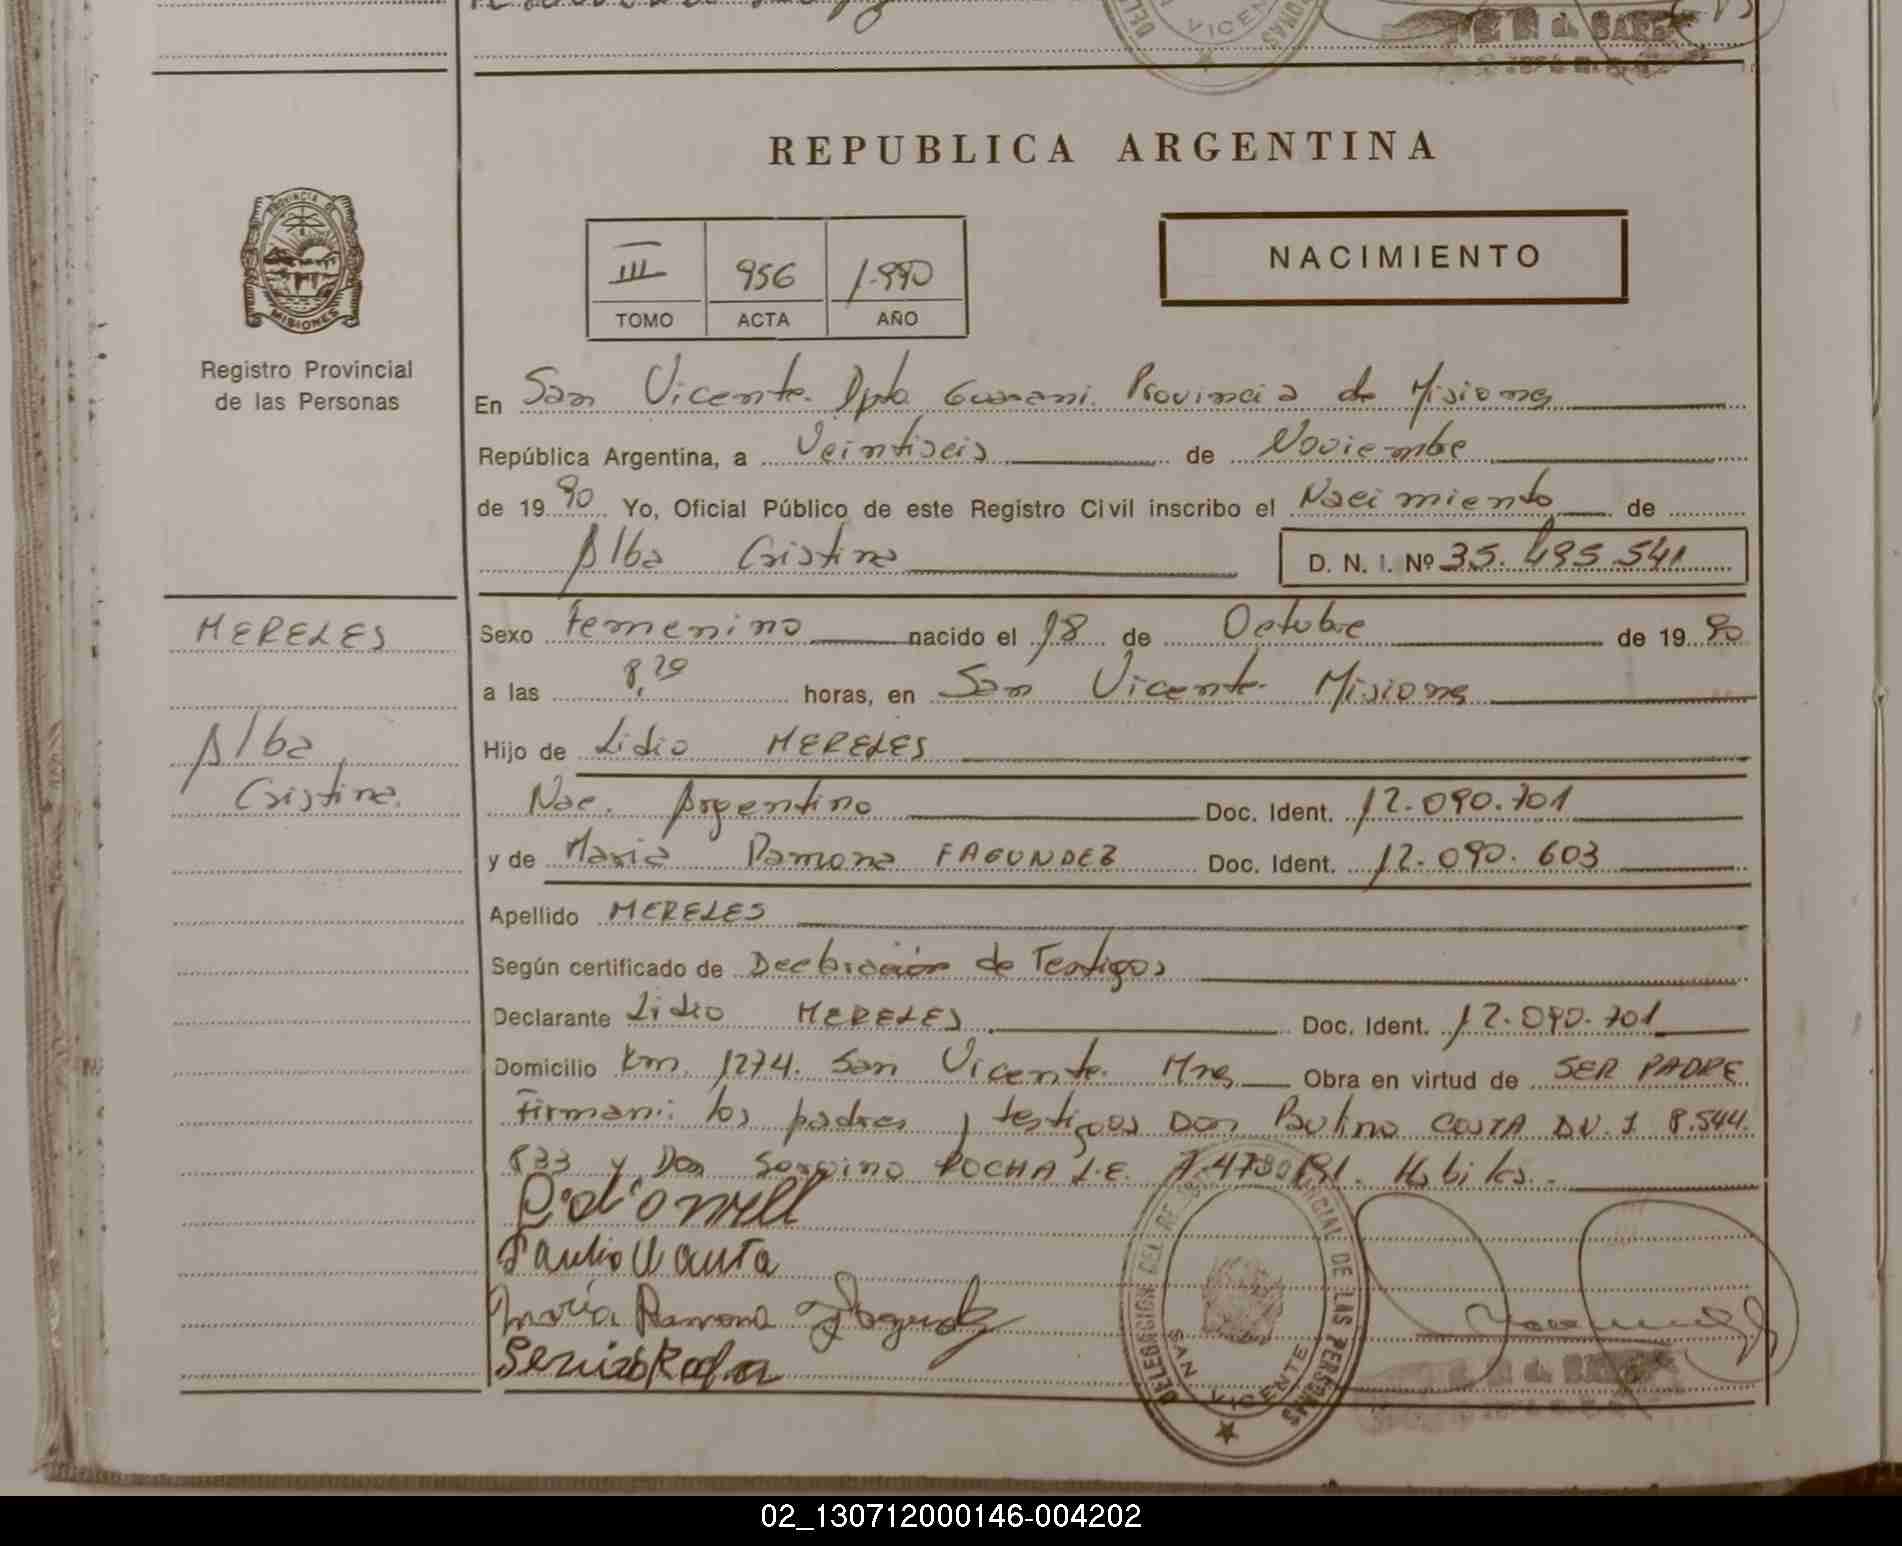 REPUBLICA ARGENTINA
PROVINCIA DE
MISIONES
Registro Provincial
de las Personas
III 956 1.990
TOMO ACTA AÑO
NACIMIENTO
En San Vicente. Dpto Guarani. Provincia de Misiones
República Argentina, a Veintiseis de Noviembre
de 19 90 Yo, Oficial Público de este Registro Civil inscribo el Nacimiento de
Alba Cristina D. N. I. Nº 35.495.541
MERELES
Alba
Cristina.
Sexo Femenino nacido el 18 de Octubre de 19 90
a las horas, en San Vicente. Misiones
Hijo de Lidio MERELES
Nac. Argentino Doc. Ident. 12.090.701
y de Maria Ramona FAGUNDEZ Doc. Ident. 12.090.603
Apellido MERELES
Según certificado de Declaración de Testigos
Declarante Lidio MERELES Doc. Ident. 12.090.701
Domicilio Km. 1274. San Vicente. Mnes Obra en virtud de SER PADRE
Firman: los padres y testigos Don COSTA D.N.I 8.544.
833 y Don ROCHA L.E. Habiles.
Maria Ramona Fagundez
DELEGACION DEL REGISTRO PROVINCIAL DE LAS PERSONAS
SAN VICENTE
02_130712000146-004202